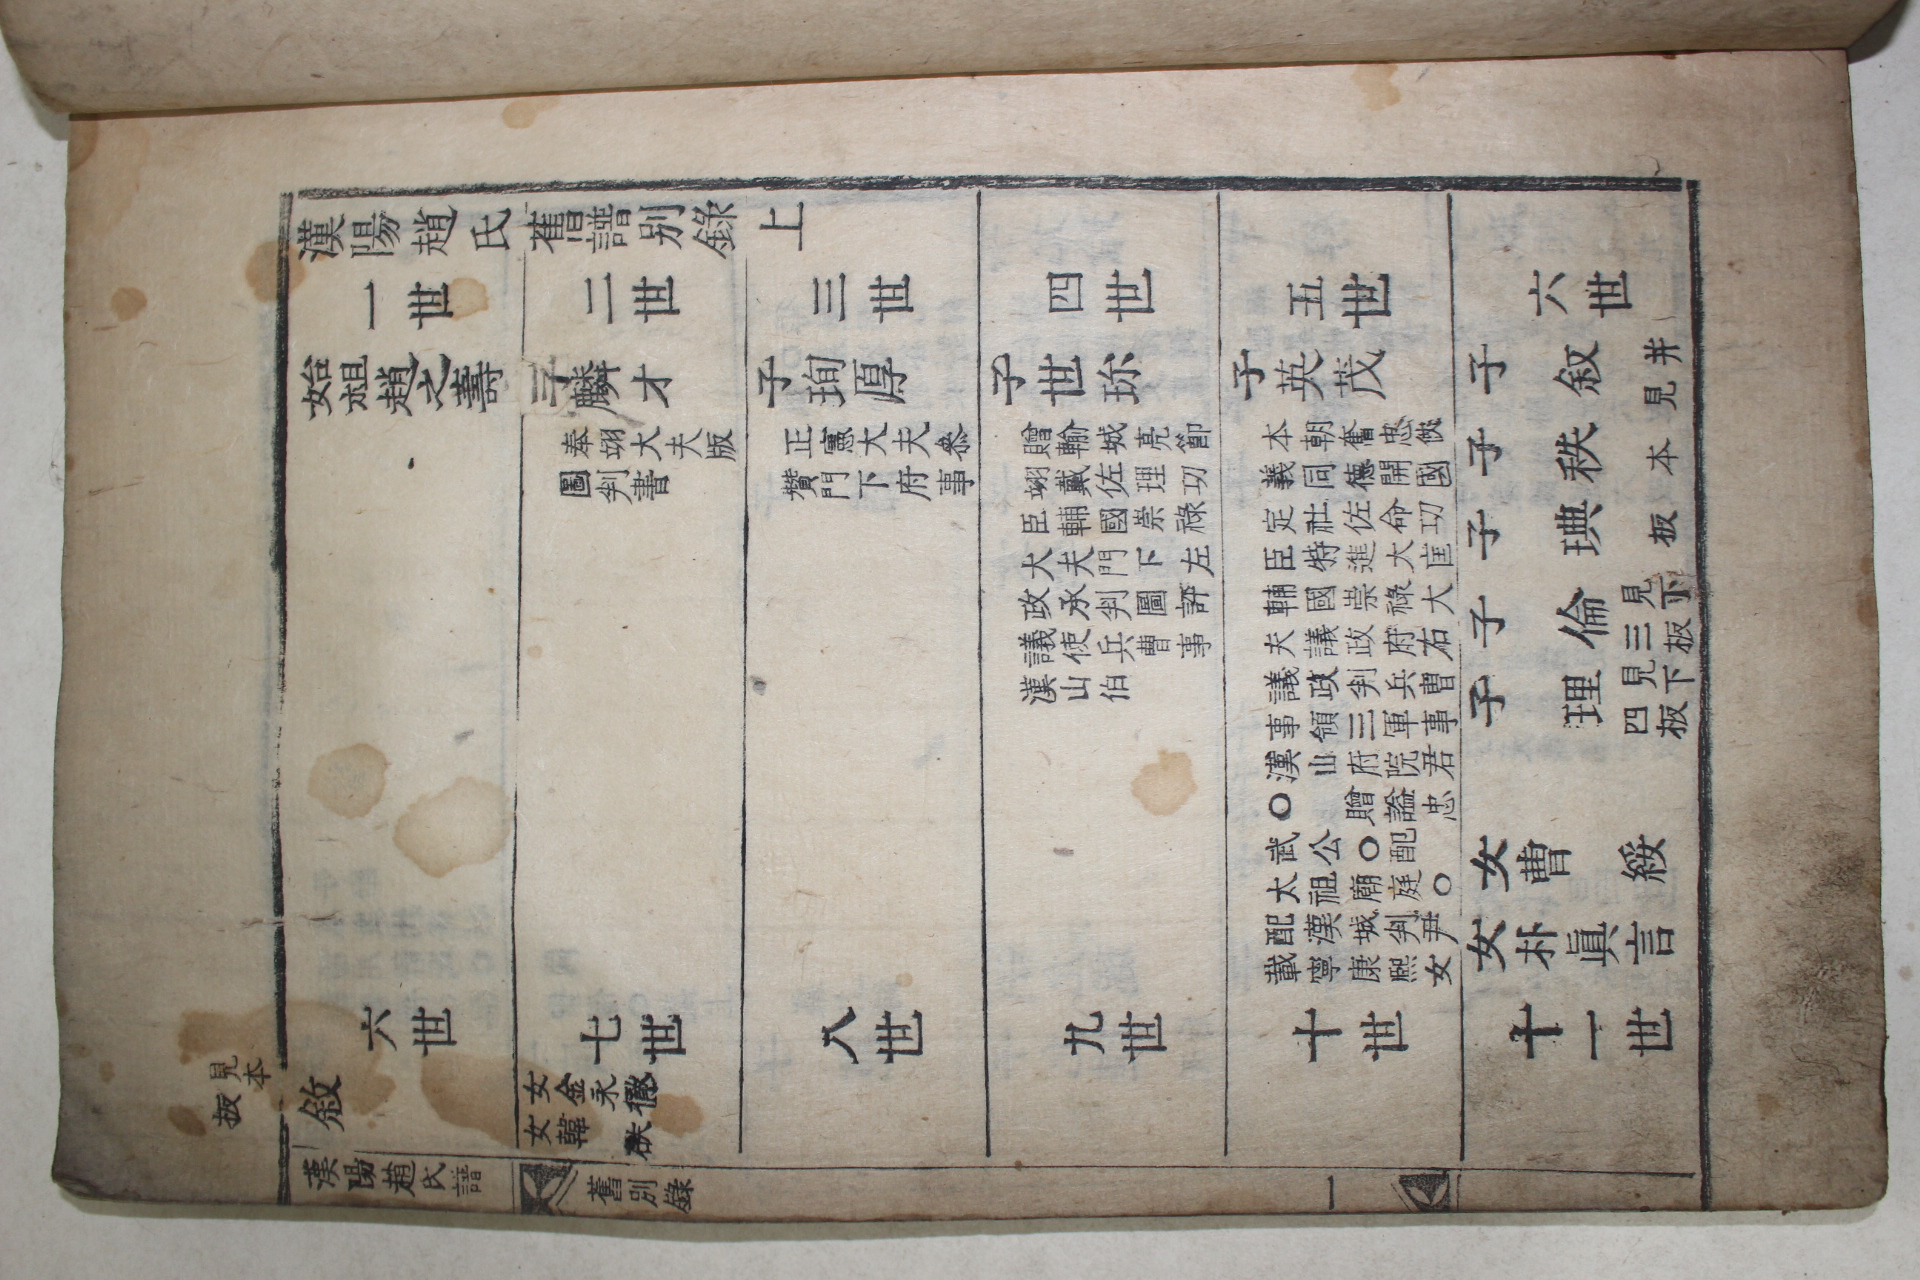 漢陽趙氏舊譜別錄上
一世
始祖趙之壽
二世
子麟才
奉翊大夫版
圖判書
三世
子珣厚
正憲大夫參
贊門下府事
四世
子世珎
贈輸城亮節
翊戴佐理功
臣輔國崇祿
大夫門下左
政承判圖評
議使兵曹事
漢山伯
五世
子英茂
本朝奮忠仗
義同德開國
定社佐命功
臣特進大匡
輔國崇祿大
夫議政府右
議政判兵曹
事領三軍事
漢山府院君
○贈謚忠
武公○配
太祖廟庭○
配漢城判尹
載寧康熙女
六世
子叙
子秩
子琠
并見本板下
子倫
見三板下
子理
見四板下
女曹綏
女朴眞言
六世
敘
見本板
七世
女金永
女韓
八世
九世
十世
十一世
漢陽趙氏譜
舊別錄
一